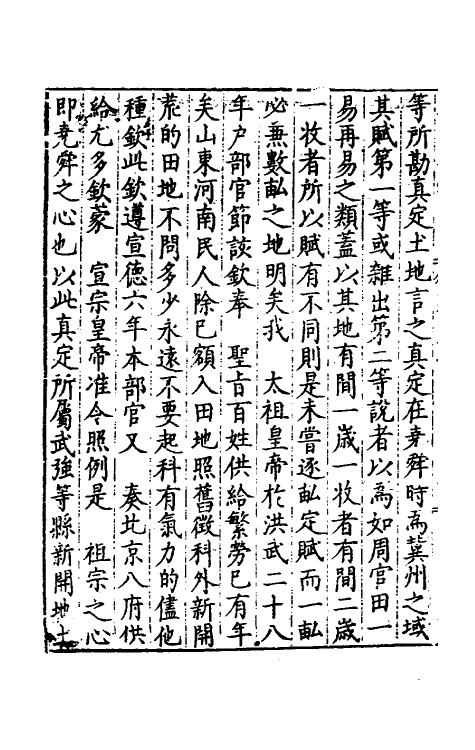 等所勘真定土地言之真定在堯舜時為兾州之域
其賦第一等或雜出第二等說者以為如周官田一
易再易之類蓋以其地有間一歲一收者有間二歲
一收者所以賦有不同則是未嘗逐畝定賦而一畝
必無數畝之地明矣我　太祖皇帝於洪武二十八
年户部官節該欽奉　聖旨百姓供給繁勞已有年
矣山東河南民人除已額入田地照舊徵科外新開
荒的田地不問多少永遠不要起科有氣力的儘他
種欽此欽遵宣德六年本部官又　奏北京八府供
給尤多欽蒙　宣宗皇帝准令照例是　祖宗之心
即堯舜之心也以此真定所屬武強等縣新開地土